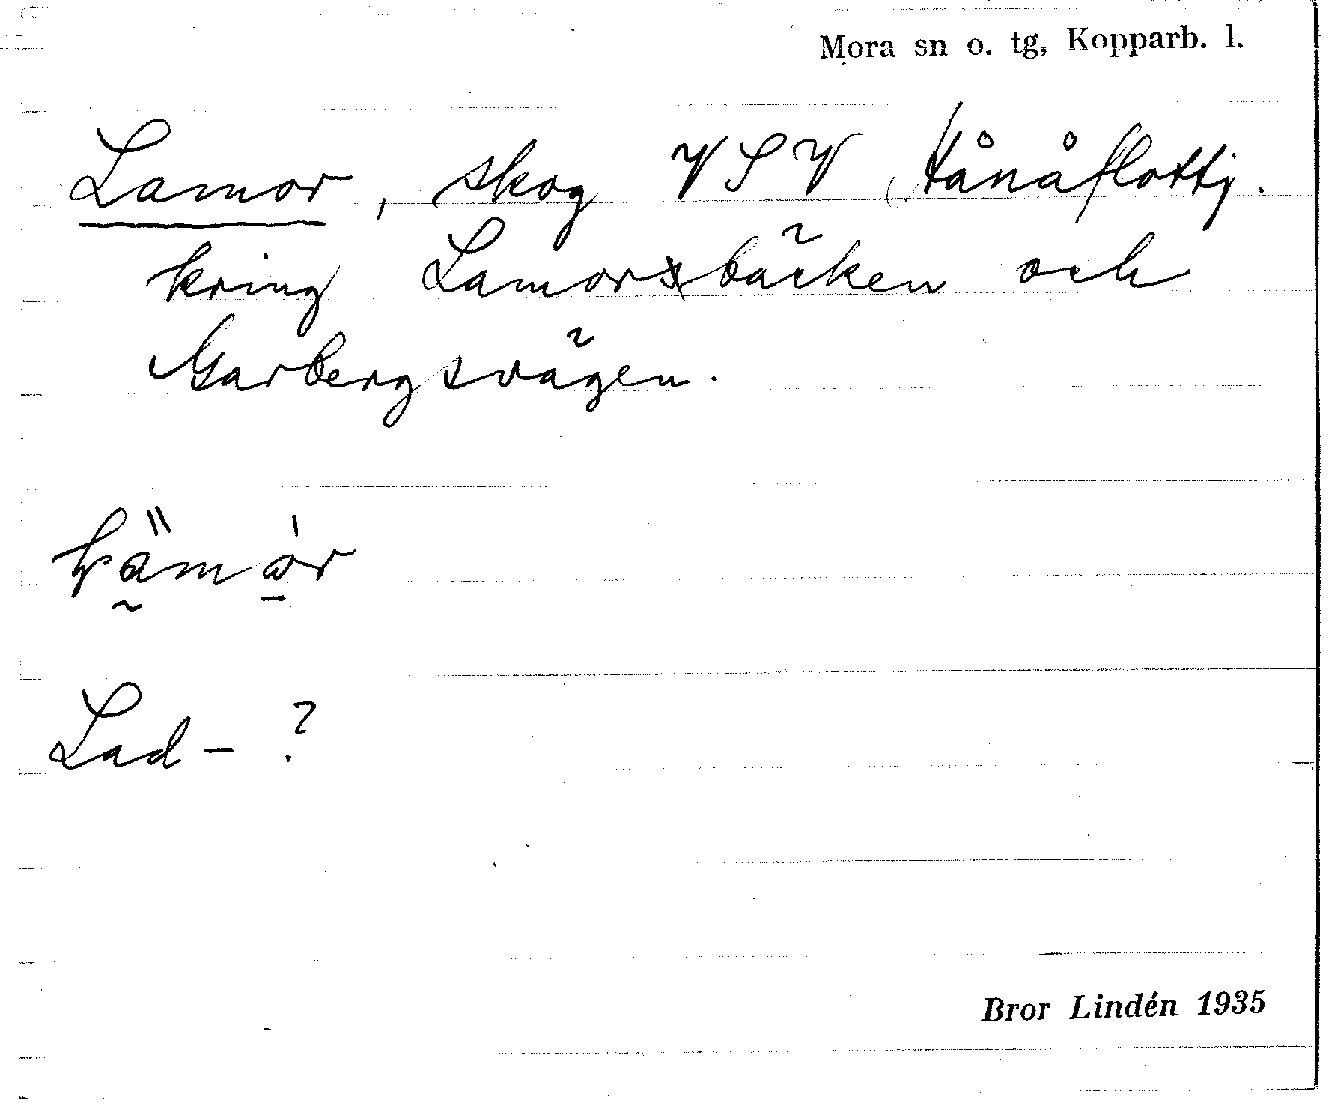 Mora sn o. tg, Kopparb. l.
Lamor, skog VSV Hånåflottj.
kring Lamorsbäcken och
Garbergsvägen.
Lad- ?
Bror Lindén 1935